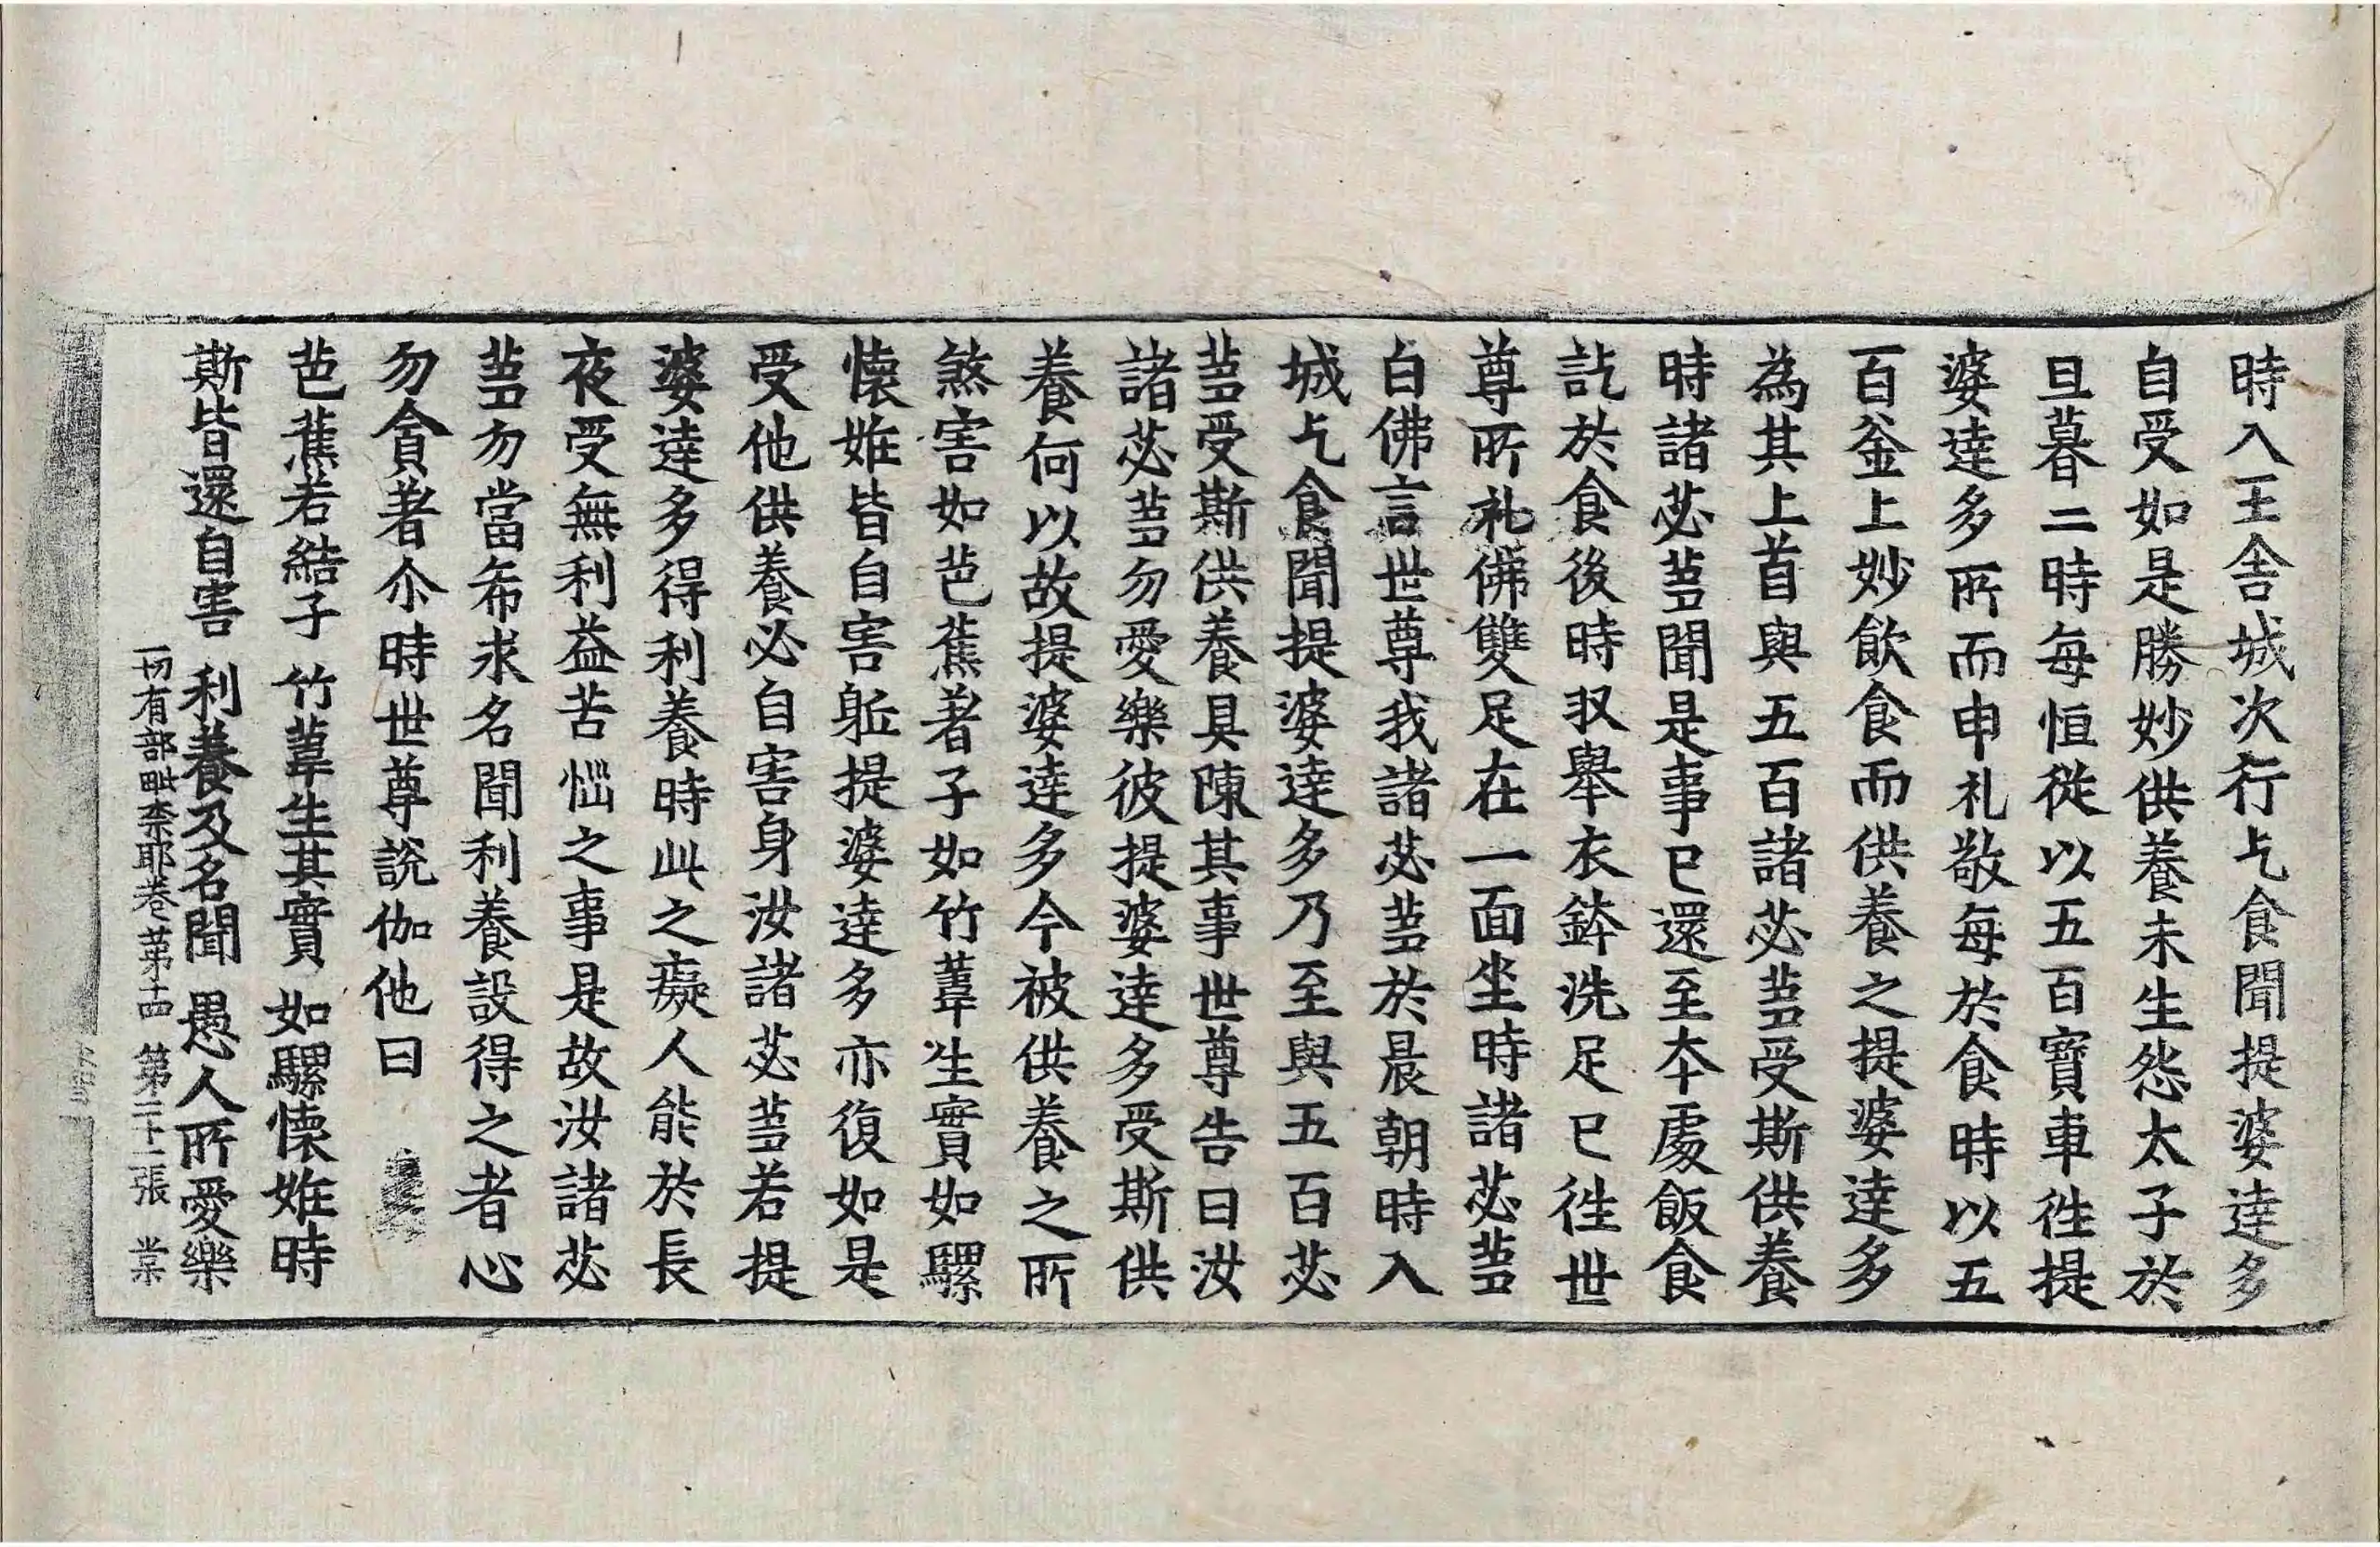 時入王舍城次行乞食聞提婆達多
自受如是勝妙供養未生怨太子於
旦暮二時每恒從以五百寶車往提
婆達多所而申礼敬每於食時以五
百釜上妙飲食而供養之提婆達多
為其上首與五百諸苾蒭受斯供養
時諸苾蒭聞是事已還至本處飯食
訖於食後時収舉衣鉢洗足已往世
尊所礼佛雙足在一面坐時諸苾蒭
白佛言世尊我諸苾蒭於晨朝時入
城乞食聞提婆達多乃至與五百苾
蒭受斯供養具陳其事世尊告曰汝
諸苾蒭勿愛樂彼提婆達多受斯供
養何以故提婆達多今被供養之所
煞害如芭蕉著子如竹葦生實如騾
懷姙皆自害軀提婆達多亦復如是
受他供養必自害身汝諸苾蒭若提
婆達多得利養時此之癡人能於長
夜受無利益苦惱之事是故汝諸苾
蒭勿當希求名聞利養設得之者心
勿貪著尒時世尊說伽他曰
芭蕉若結子 竹葦生其實 如騾懷姙時
斯皆還自害 利養及名聞 愚人所愛樂
一切有部毗奈耶卷苐十四 第二十二張 棠